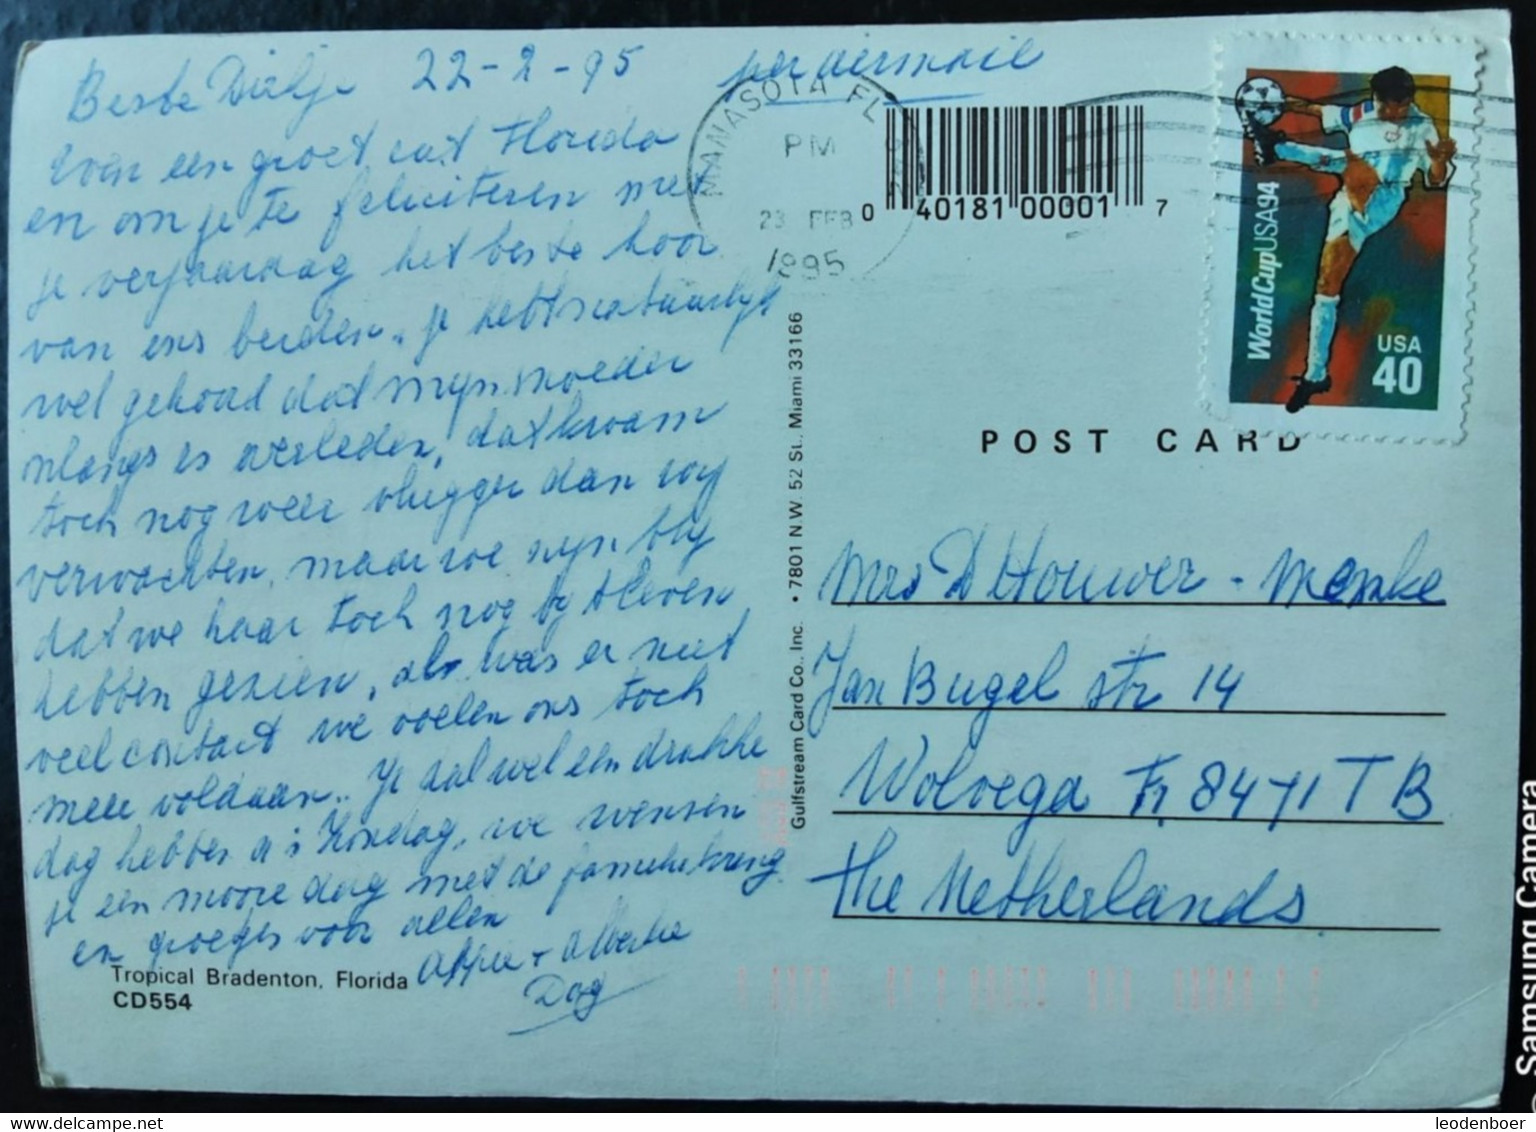 Beste Dirkje 22-2-95
Even een groet uit Florida
en om je te feliciteren met
je verjaardag het beste hoor
van ons beiden. je hebt natuurlijk
wel gehoord dat mijn moeder
onlangs is overleden, dat kwam
toch nog weer vlugger dan wij
verwachten, maar we zijn blij
dat we haar toch nog bij
hebben gezien, al was er niet
veel contact we voelen ons toch
meer voldaan. Je zal wel een drukke
dag hebben a's Zondag, we wensen
je een mooie dag met de
en groetjes voor allen
Appie + Albertha
Dag
Tropical Bradenton, Florida
CD554
Gulfstream Card Co., Inc. • 7801 N.W. 52 St. Miami 33166
per airmail
MANASOTA FL
PM
23 FEB
1995
0 40181 00001 7
WorldCupUSA94
USA
40
POST CARD
Mrs D Houwer - Menke
Jan Bugel str 14
Wolvega Fr. 8471 TB
The Netherlands
Samsung Camera
leodenboer